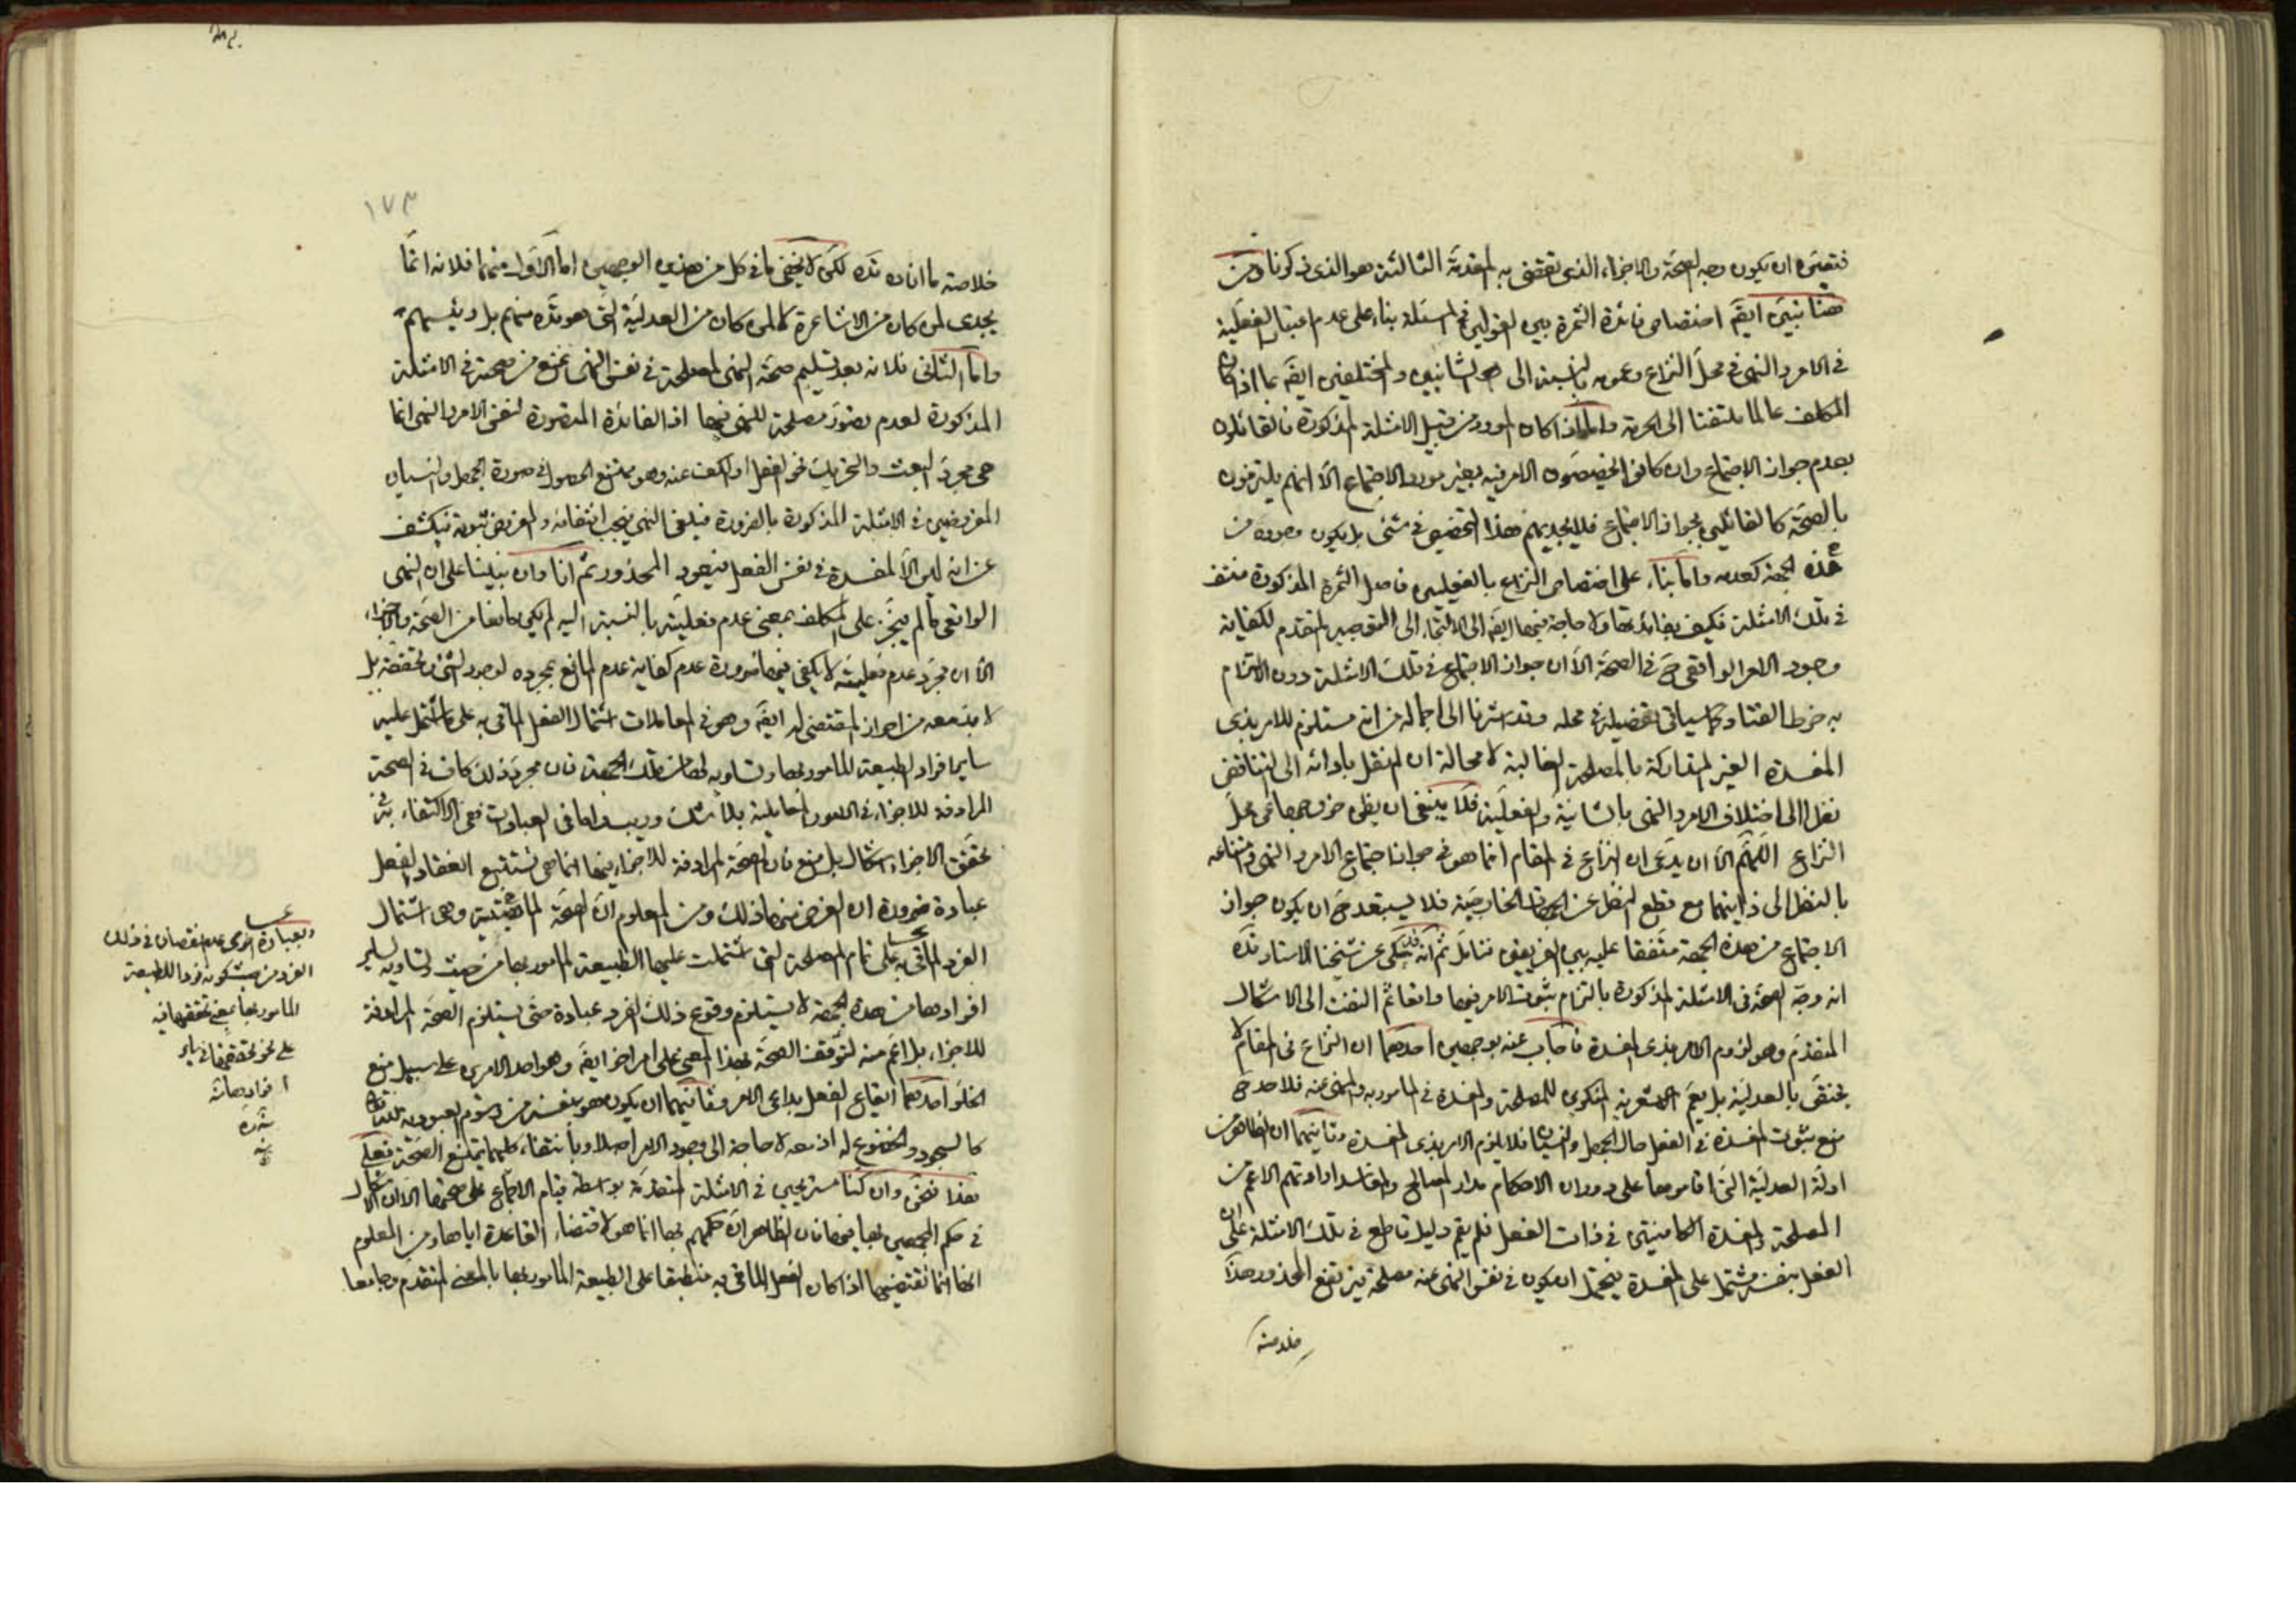 فتعين ان يكون وجه الصحة والاجزاء الذي تقتضي به المقدمة الثالثة هو الذي ذكرنا ومن
هنا تبين ايضَ اختصاص فائدة الثمرة بين القولين في المسئلة بناء على عدم اعتبار الفعلية
في الامر والنهي في محل النزاع وعمومه بالنسبة الى الشانيين والمختلفين ايضَ بما اذا كان
المكلف عالما ملتفتا الى الحرمة واما اذا كان المورد من قبيل الامثلة المذكورة فالقائلون
بعدم جواز الاجتماع وان كانوا يخصصون الامر فيه بغير مورد الاجتماع الا انهم يلتزمون
بالصحة كالقائلين بجواز الاجتماع فلا يجديهم هذا التخصيص في شئ بل يكون وجوده من
هذه الجهة كعدمه واما بناء على اختصاص النزاع بالفعليين فاصل الثمرة المذكورة منتف
في تلك الامثلة فكيف بفائدتها ولا حاجة فيها ايضَ الى الالتجاء الى التوجيه المتقدم لكفاية
وجود الامر الواقعي حَ في الصحة الا ان جواز الاجتماع في تلك الامثلة دون الالتزام
به خرط القتاد كما سياتي تفصيله في محله وقد اشرنا الى اجماله من انه مستلزم للامر بذي
المفسدة الغير المتداركة بالمصلحة الغالبة لا محالة ان لم نقل بادائه الى التناقض
نظرا الى اختلاف الامر والنهي بالشانية والفعلية فلا ينبغي ان يظن خروجها عن محل
النزاع اللهم الا ان يدعى ان النزاع في المقام انما هو في جواز اجتماع الامر والنهي وامتناعه
بالنظر الى ذاتيهما مع قطع النظر عن الجهات الخارجية فلا يستبعد حَ ان يكون جواز
الاجتماع من هذه الجهة متفقا عليه بين الفريقين فتامل ثم انه قد حكى عن شيخنا الاستاد قده
انه وجه الصحة في الامثلة المذكورة بالتزام ثبوت الامر فيها واقعا ثم التفت الى الاشكال
المتقدم وهو لزوم الامر بذي المفسدة فاجاب عنه بوجهين احدهما ان النزاع في المقام لا
يختص بالعدلية بل يعم الاشعرية المنكرين للمصلحة والمفسدة في المامور به والمنهي عنه فلاحد حَ
منع ثبوت المفسدة في الفعل حال الجهل والنسيان فلا يلزم الامر بذي المفسدة وثانيهما ان الظاهر من
ادلة العدلية التي اقاموها على دوران الاحكام مدار المصالح والمفاسد ارادتهم الاعم من
المصلحة والمفسدة الكامنتين في ذات الفعل فلم يقم دليل قاطع في تلك الامثلة على ان
الفعل بنفسه مشتمل على المفسدة فيحتمل ان يكون في نفس النهي عنه مصلحة فيرتفع المحذور هذا
خلاصة
١٧٣
خلاصة ما افاده قده لكن لا يخفى ما في كل من هذين الوجهين اما الاول منهما فلانه انما
يجدي لمن كان من الاشاعرة لا لمن كان من العدلية التي هو قده منهم بل ورئيسهم
واما الثاني فلانه بعد تسليم صحة النهي لمصلحة في نفس النهي نمنع من صحته في الامثلة
المذكورة لعدم تصور مصلحة للنهي فيها اذ الفائدة المتصورة لنفس الامر والنهي انما
هي مجرد البعث والتحريك نحو الفعل او الكف عنه وهو ممتنع الحصول في صورة الجهل والنسيان
المفروضين في الامثلة المذكورة بالضرورة فيلغى النهي فيجب انتفائه والمفروض ثبوته فيكشف
عن انه ليس الا لمفسدة في نفس الفعل فيعود المحذور ثم انا وان بنينا على ان النهي
الواقعي ما لم يتنجز على المكلف بمعنى عدم فعليته بالنسبة اليه لم يكن مانعا من الصحة والاجزاء
الا ان مجرد عدم فعليته لا يكفي فيها ضرورة عدم كفاية عدم المانع بمجرده لوجود الشئ وتحققه بل
لا بد معه من احراز المقتضي له ايضَ وهو في المعاملات اشتمال الفعل الماتي به على ما اشتمل عليه
ساير افراد الطبيعة المامور بها وتساويه لها من تلك الجهة فان مجرد ذلك كاف في الصحة
المرادفة للاجزاء في الامور المعاملية بلا شك وريب واما في العبادات ففي الاكتفاء به في
تحقق الاجزاء اشكال بل منع فان الصحة المرادفة للاجزاء فيها انما هي تستتبع انعقاد الفعل
عبادة ضرورة ان الغرض منها ذلك ومن المعلوم ان الصحة الماهيتية وهي اشتمال
الفرد الماتي به على تمام المصلحة التي اشتملت عليها الطبيعة المامور بها من حيث وتساويه لساير
افرادها من هذه الجهة لا يستلزم وقوع ذلك الفرد عبادة حتى يستلزم الصحة المرادفة
للاجزاء بل اعم منه لتوقف الصحة بهذا المعنى على امر اخر ايضَ وهو احد الامرين على سبيل منع
الخلو احدهما ايقاع الفعل بداعي الامر وثانيهما ان يكون هو بنفسه من رسوم العبودية
كالسجود والخضوع له اذ معه لا حاجة الى وجود الامر اصلا وبانتفاء كليهما يمتنع الصحة فعلى
هذا فنحن وان كنا مستريحين في الامثلة المتقدمة بواسطة قيام الاجماع على صحتها الا ان الاشكال
في حكم المجمعين بها فيها فان الظاهر ان حكمهم بها انما هو لاقتضاء القاعدة اياها ومن المعلوم
انها انما تقتضيها اذا كان الفعل الماتي به منطبقا على الطبيعة المامور بها بالمعنى المتقدم وجامعا
وبعبارة اخرى عدم نقصان في ذلك
الفرد من حيث كونه فردا للطبيعة
المامور بها بمعنى تحققها فيه
على نحو تحققها في ساير
افرادها منه